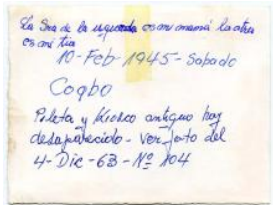 La Sra de la izquierda es mi mamá la otra
es mi tía
10-Feb-1945-Sabado
Coqbo
Pileta y kiosco antiguo hoy
desaparecido-ver foto del
4-Dic-63-Nº 104